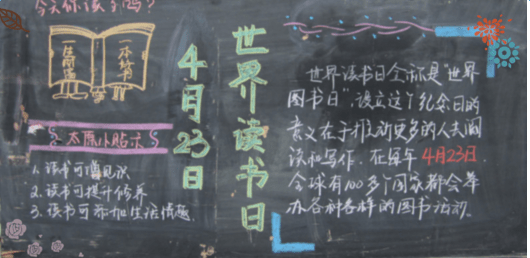 今天你读了吗?
一本好书
4月23日
世界读书日
世界读书日全称是“世界
图书日”,设立这个纪念日的
意义在于推动更多的人去阅
读和写作,在每年4月23日,
全球有100多个国家都会举
办各种各样的图书活动。
小贴士
1、读书可增见识
2、读书可提升修养
3、读书可添加生活情趣